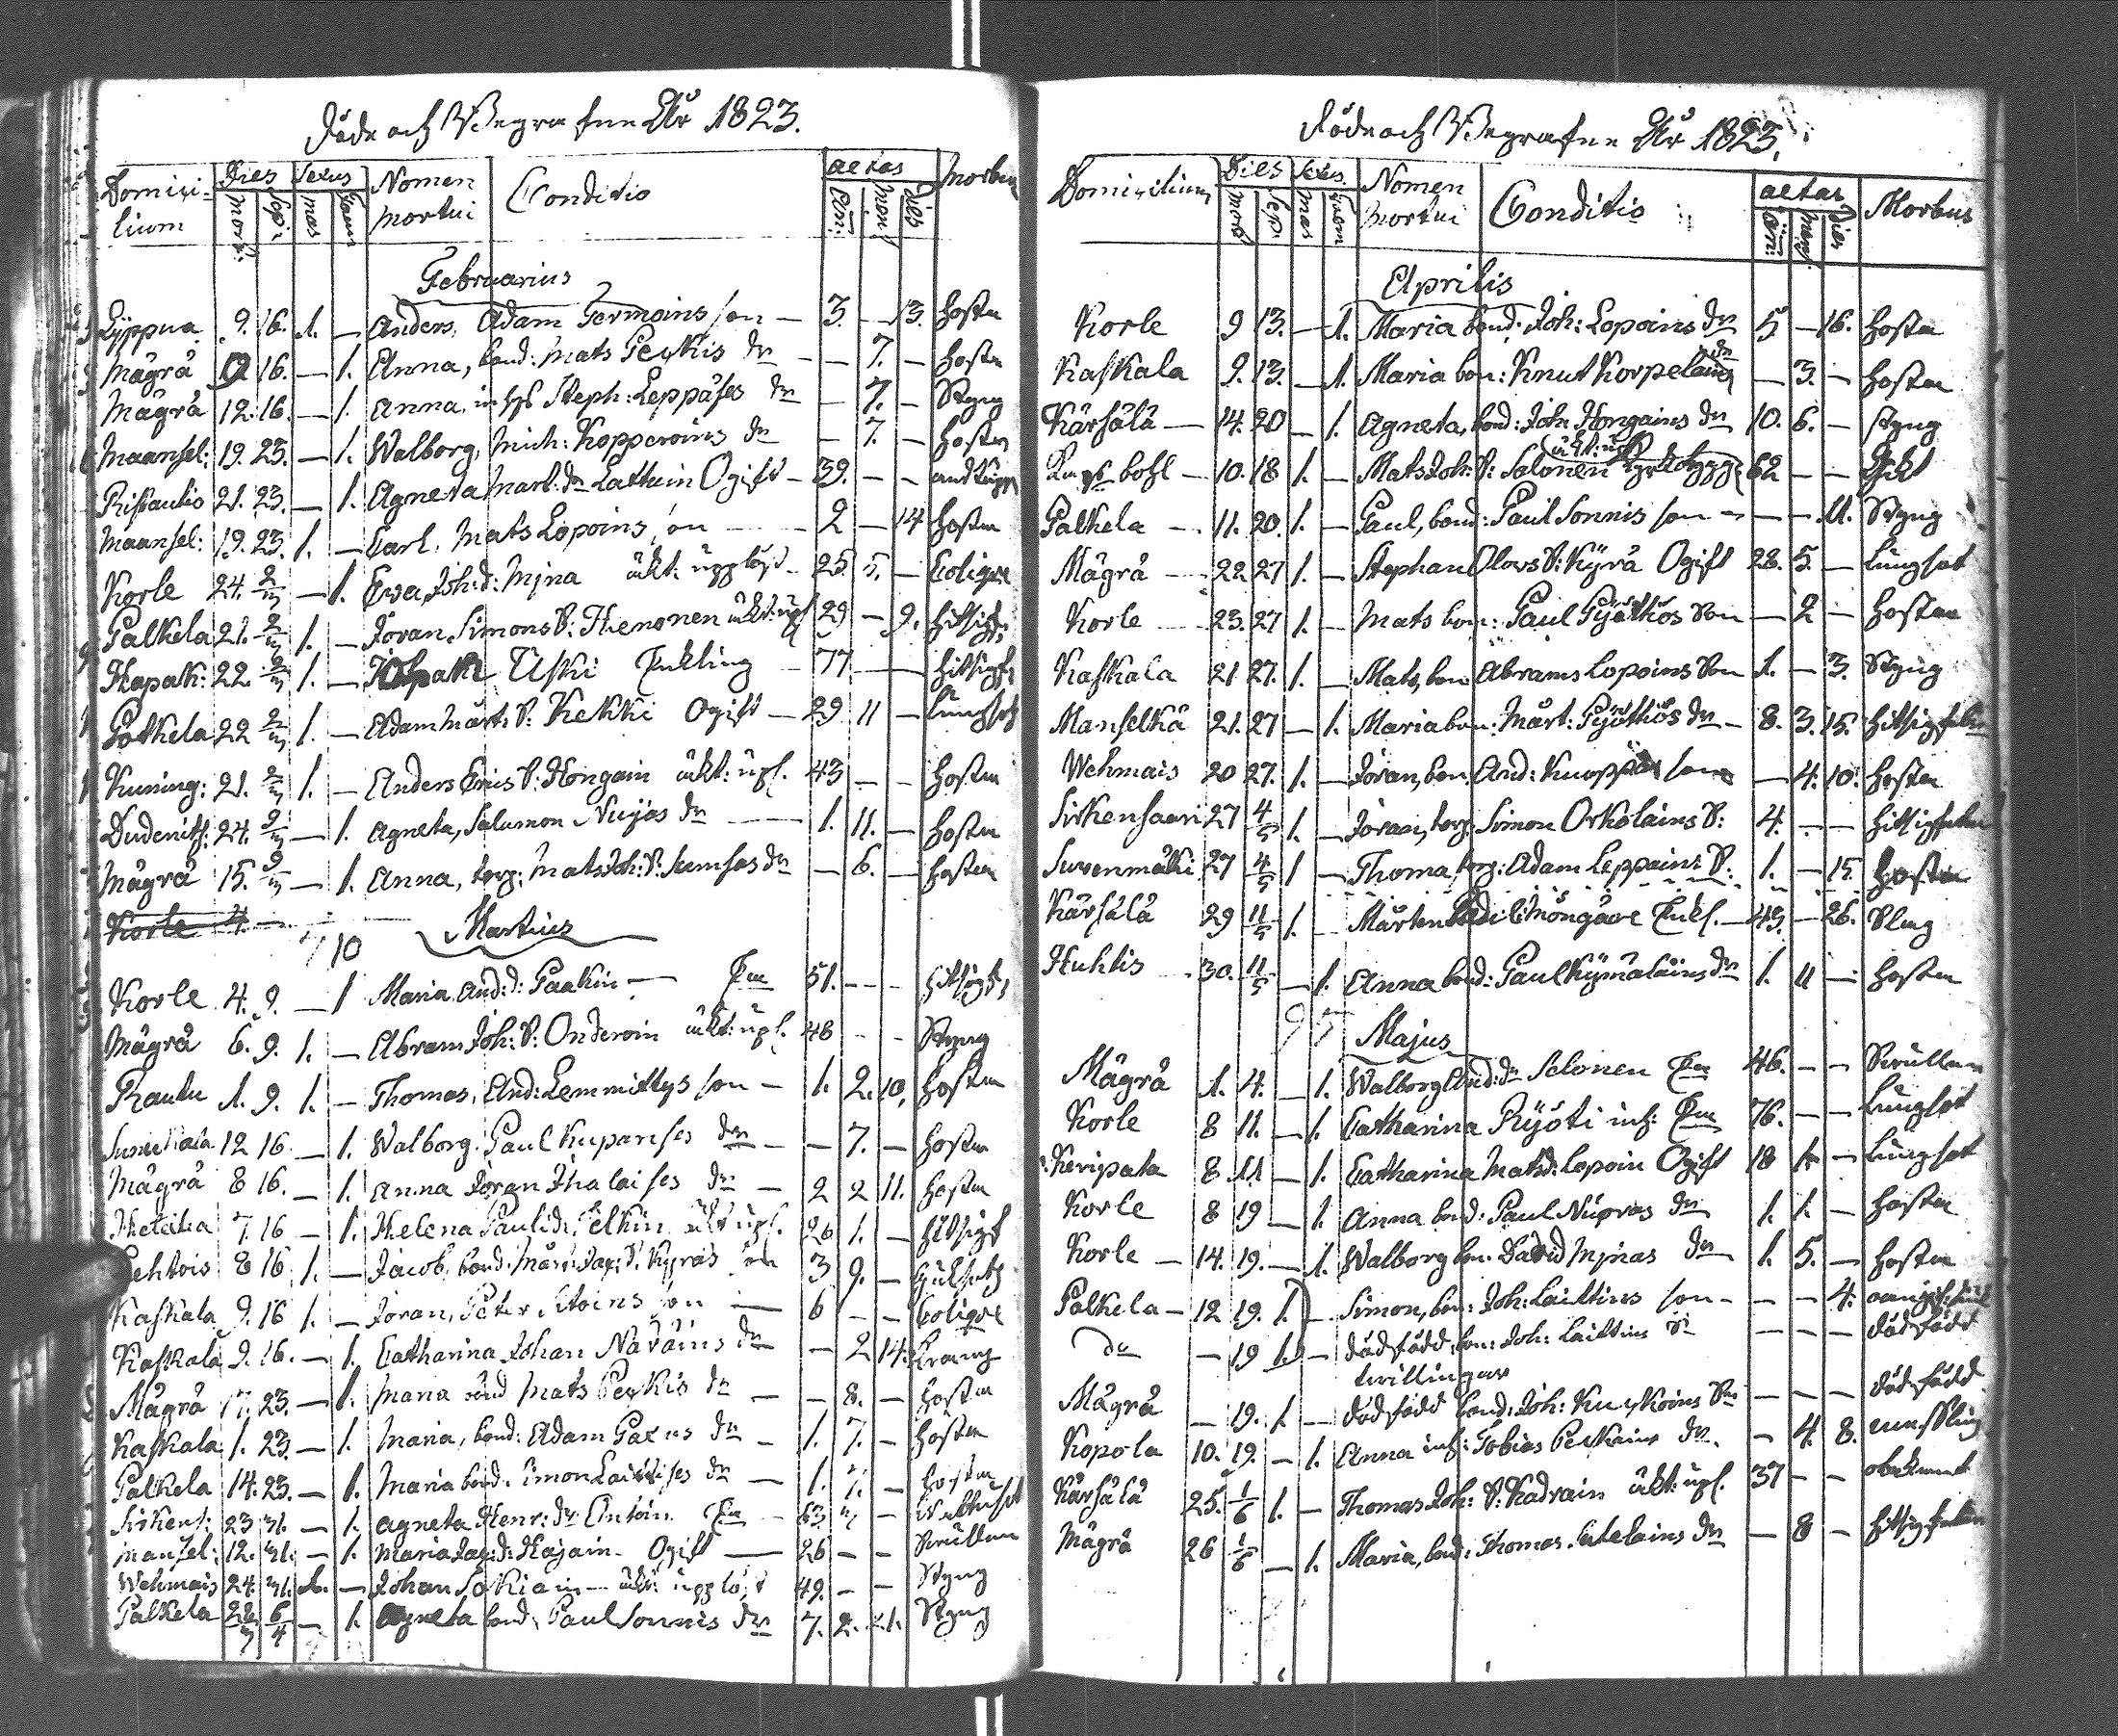 Döde och Begrafne År 1823.
Domici- Dies Sexus Nomen Conditio aetas Morbus
lium Mort: Sep: mas faem mortui ann: Mens Dies
Februarius
Lyppua 9. 16. 1. — Anders, Adam Germoins son — 3. — 13. hosta
Mägrä 12 16. — 1. Anna, bond: Mats Peukis dr — — 7. — hosta
Mägrä 12. 16. — 1. Anna, Steph: Leppäses dr — 7. — Styng
Maansel: 19. 23. — 1. Walborg, Mich: Kopperoins dr — 7. — hosta
Ristautio 21. 23. — 1. Agneta Mart: dr Lattuin Ogift — 39. — —
Maansel: 19. 23. 1. — Carl, Mats Lopoins son — 2 — 14 hosta
Korle 24. 2/3 — 1. Ewa, Joh: d: Mjna äkt: upplöst 25. 5. — Colique
Palkela 21. 2/3 1. — Jöran Simons S: Hienonen äkt: upl 29 — 9. hitsigf
Hapak: 22. 2/3 1. — Uski Enkling — 77 — — hitsigf
Palkela 22 2/3 1. — Adam Mårt: S: Kekki Ogift — 29 11 — lungsot
Kuning: 21. 2/3 1. — Anders Eriks S: Hongain äkt: upl. 43 — — hosta
Dudenits: 24. 2/3 — 1. Agneta, Salomon Nuijas dr — 1. 11. — hosta
Mägrä 15. 2/3 — 1. Anna, torp: Mats Joh: S: Semses dr — 6. — hosta
Korle 4.
10 Martius
Korle 4. 9. — 1 Maria And: d: Paakin — Enka 51. — — hitsigf
Mägrä 6. 9. 1. — Abram Joh: S: Onderoin äkt: upl. 48 — — Styng
Rautu 1. 9. 1. — Thomas, And: Lemmittys son — 1. 2. 10. hosta
12 16. — 1. Walborg, Paul Kupanses dr — — 7. — hosta
Mägrä 8 16. — 1. Anna Jöran Ihalaises dr — 2 2 11. hosta
7. 16 — 1. Helena Paulsdr äkt: upl. 26 1. — hitsigf
8 16. 1. — Jacob, bond: Mårt: Jac: S: Kyräs son 3 9. —
Kaskala 9. 16 1. — Jöran, Peter Sitoins son — 6 — — Colique
Kaskala 9. 16. — 1. Catharina Johan Naräins dr — 2 14.
Mägrä 17. 23. — 1. Maria bond Mats Peukis dr — — 8. — hosta
Kaskala 1. 23. — 1. Maria, bond: Adam Paxus dr — 1. 7. — hosta
Palkela 14. 23. — 1. Maria bond: Simon Laittises dr — 1. 7. — hosta
Sirkens: 23 31. — 1. Agneta Henr: dr Antoin Enka — 63 — Wattusot
Mansel: 12. 31. — 1. Maria Jac: d: Hajain Ogift — 26 — —
Wehmais 24. 31. 1. — Johan Sokiain — äkt: upplöst 49. — — Styng
Palkela 6/4 — 1. Agneta bond: Paul Sonnis dr 7. 2. 21. Styng
Döde och Begrafne År 1823.
Domicilium Dies Sexus. Nomen Conditio aetas Morbus
Mort: Sep: Mas Faem Mortui ann: Mens: Dies
Aprilis
Korle 9 13. — 1. Maria bond: Joh: Lopoins dr 5 — 16. hosta
Kaskala 9. 13. — 1. Maria bon: Knut Korpelains dr — 3. — hosta
Kärsälä — 14. 20 — 1. Agneta, bond: Joh: Hongains dr 10. 6. — styng
bohl — 10. 18 1. — Mats Joh: S: Salonen 62 — — Gikt
Palkela — 11. 20. 1. — Paul, bond: Paul Sonnis son — — — 11. Styng
Mägrä — 22. 27 1. — Stephan Olovs S: Kyrä Ogift 28. 5. — Lungsot
Korle 23. 27 1. — Mats bon: Paul Pyöttiös Son — 2 — hosta
Kaskala 21 27. 1. — Mats, bon Abrams Lopoins Son 1. — 3. Styng
Manselkä 21. 27 — 1. Maria bon: Mårt: Pyöttiös dr — 8. 3. 15. hitsigfeber
Wehmais 20 27. 1. — Jöran, bon. And: Kuoppas son — 4. 10. hosta
Sirkensaari 27 4/5 1. — Jöran, torp: Simon Orkolains S: 4. — — hitsigfeber
Suvenmäki 27 4/5 1 — Thoma, torp: Adam Leppains S: 1. — 15. hosta
Kärsälä 29 11/5 1. — Mårten Enkl. — 49. — 26. Slag
Huhtis 30. 11/5 — 1. Anna bond: Paul Kymäläins dr 1. 11 — hosta
Majus
Mägrä 1. 4. — 1. Walborg And: dr Solonen Enka 46. — —
Korle 8 11. — 1. Catharina Ryöti inh: Enka 76. — — Lungsot
Keripata 8 11 — 1. Catharina Mats d: Lopoin Ogift 18 1. — Lungsot
Korle 8 19 — 1. Anna bond: Paul Nupras dr 1. 1. — hosta
Korle — 14. 19. — 1. Walborg bon. David Mjnas dr 1. 5. — hosta
Palkela — 12 19. 1. — Simon, bon: Joh: Laittins son — — — 4.
Do — 19 1. — dödfödd, bon: Joh: Laittins S: — — — dödfödd
twillingar
Mägrä — 19. 1. — dödfödd bond: Joh: Kuukoins Sn — — — dödfödd
Kopola 10. 19. — 1. Anna inh: Tobias Peukains dr. — 4. 8. messling
Kärsälä 25. 1/6 1. — Thomas Joh: S: Kadrain äkt: upl. 37 — — obekant
Mägrä 26 1/6 — 1. Maria, bond: Thomas dr — 8 — hitsigfeber